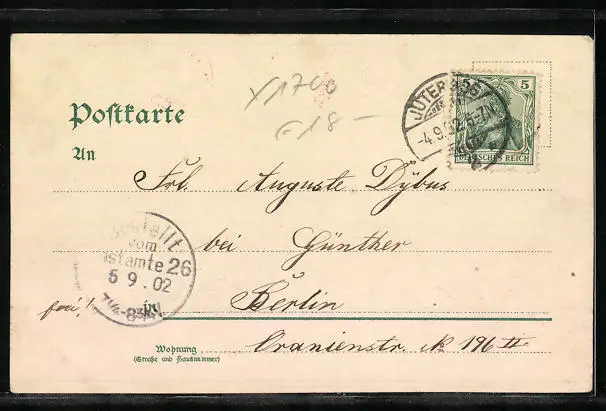 X1700
€18-
Postkarte
JÜTERBOG
-4.9.02.5-7N.
5
DEUTSCHES REICH
An
Frl. Auguste Dybus
bei Günther
Bestellt
vom
Postamte 26
5 9. 02
7¼-8¾V.
frei!
in Berlin
Wohnung
(Straße und Hausnummer)
Oranienstr. № 196 II